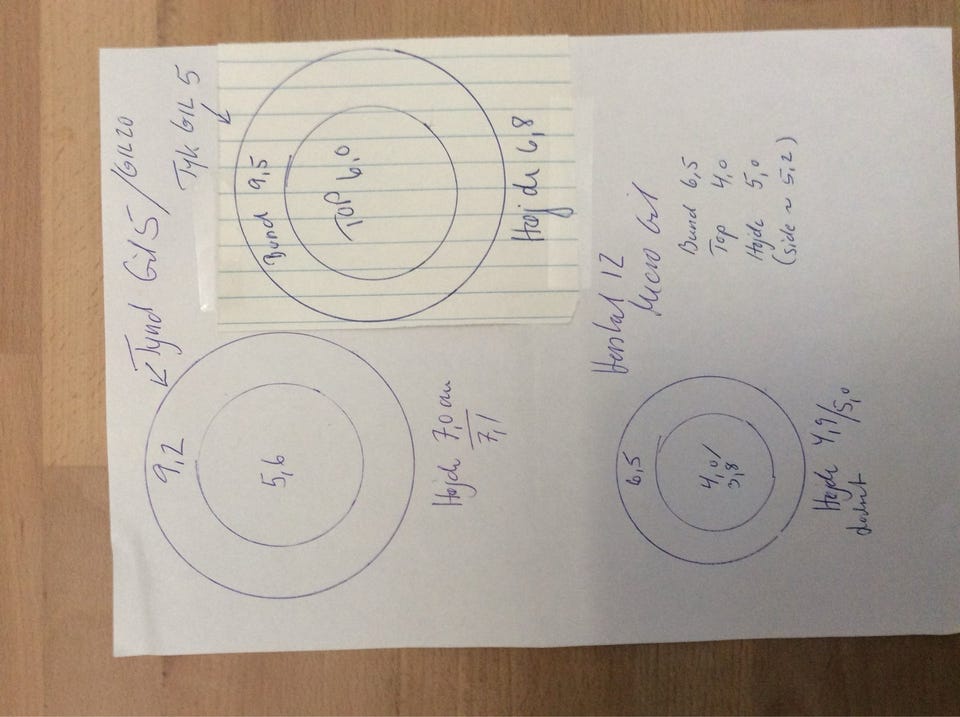 Tynd Gil 5/GIL20
9,2
5,6
Højde 7,0 cm
7,1
Tyk GIL 5
Bund 9,5
TOP
6,0
Højde 6,8
12
Micro Gil
6,5
4,0/
3,8
Højde 4,9/5,0
Bund 6,5
Top 4,0
Højde 5,0
(side ~ 5,2)